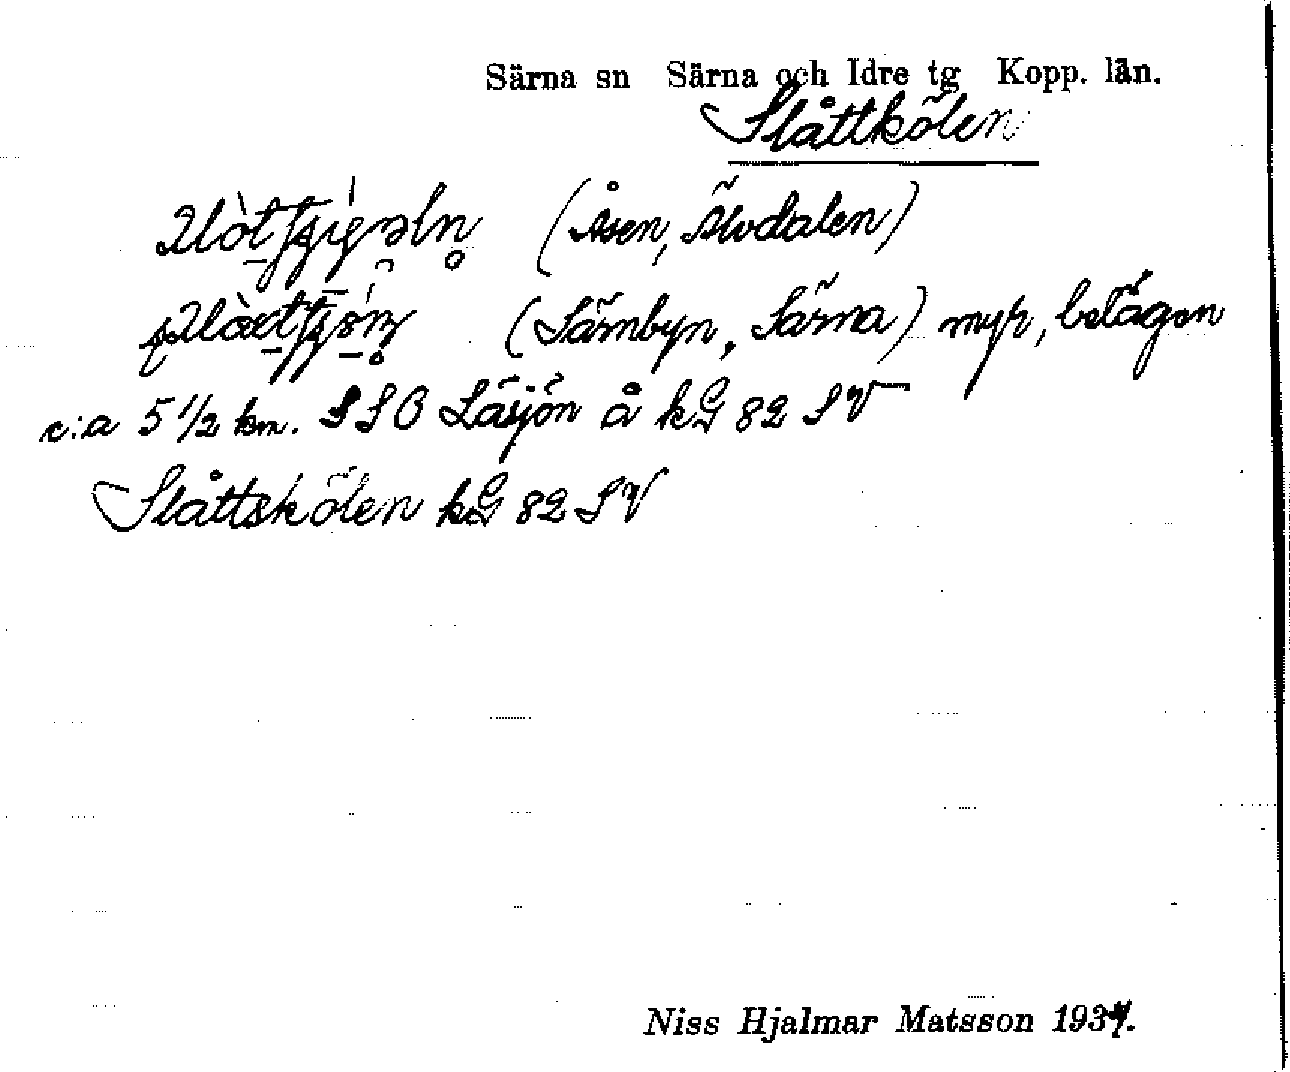 Särna sn Särna och Idre tg Kopp. län.
Slåttkölen
(Åsen, Älvdalen)
(Särnbyn, Särna) myr, belägen
c:a 5 1/2 km. SSO Läsjön å kG 82 SV
Slåttskölen kG 82 SV
Niss Hjalmar Matsson 1934.